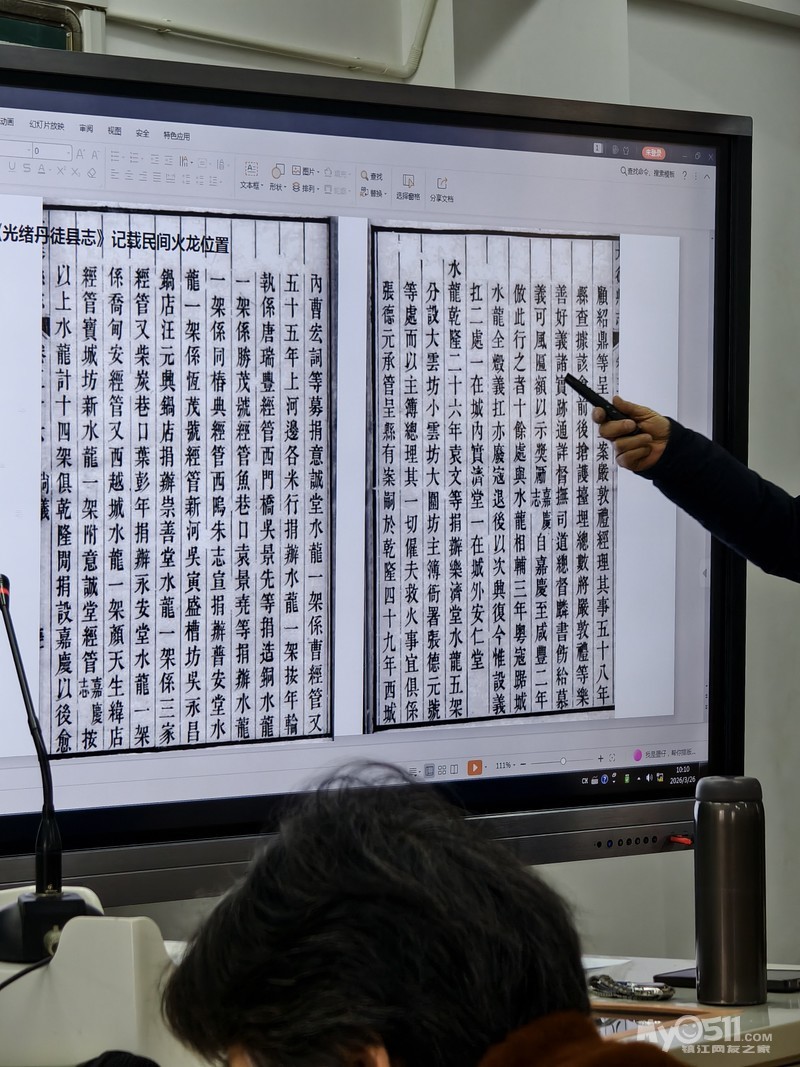 动画 幻灯片放映 审阅 视图 安全 特色应用
未登录
查找命令、搜索模板
文本框 形状 图片 排列 查找 替换 选择窗格 分享文档
《光绪丹徒县志》记载民间火龙位置
顧紹鼎等呈 案嚴敦禮經理其事五十八年
縣查據該 前後搶護擡埋總數將嚴敦禮等樂
善好義諸實跡通詳督撫司道總督麟書飭給慕
義可風匾額以示獎勵嘉慶志自嘉慶至咸豐二年
倣此行之者十餘處與水龍相輔三年粵寇踞城
水龍全燬義扛亦廢寇退後以次興復今惟設義
扛二處一在城內實濟堂一在城外安仁堂
水龍乾隆二十六年袁文等捐辦樂濟堂水龍五架
分設大雲坊小雲坊大圍坊主簿衙署張德元號
等處而以主簿總理其一切僱夫救火事宜俱係
張德元承管呈縣有案嗣於乾隆四十九年西城
內曹宏詞等募捐意誠堂水龍一架係曹經管又
五十五年上河邊各米行捐辦水龍一架按年輪
執係唐瑞豐經管西門橋吳景先等捐造銅水龍
一架係勝茂號經管魚巷口袁景堯等捐辦水龍
一架係同椿典經管西 朱志宣捐辦普安堂水
龍一架係恆茂號經管新河吳寅盛槽坊吳永昌
鍋店汪元興鍋店捐辦崇善堂水龍一架係三家
經管又柴炭巷口葉彭年捐辦永安堂水龍一架
係喬甸安經管又西越城水龍一架顏天生緯店
經管寶城坊新水龍一架附意誠堂經管嘉慶志按
以上水龍計十四架俱乾隆間捐設嘉慶以後愈
111%
10:10
2026/3/26
my0511.COM
镇江网友之家